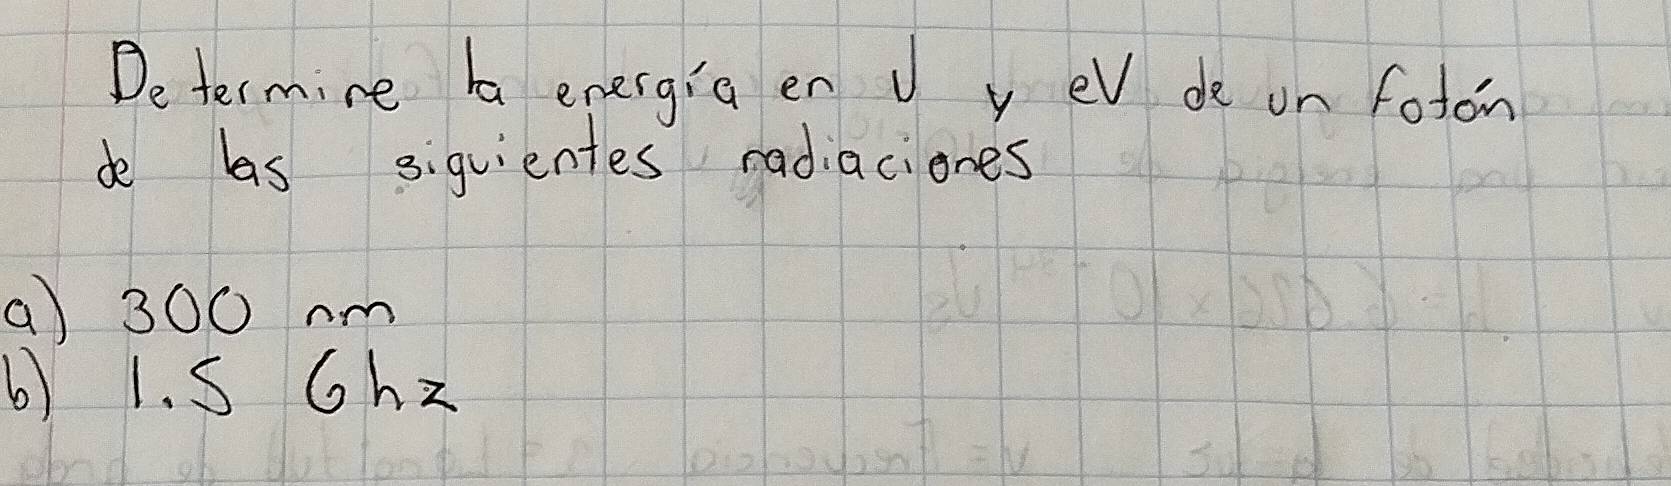 Determine la energía en J y eV de un fotón
de las siguientes radiaciones
a) 300 nm
b) 1.5 Ghz